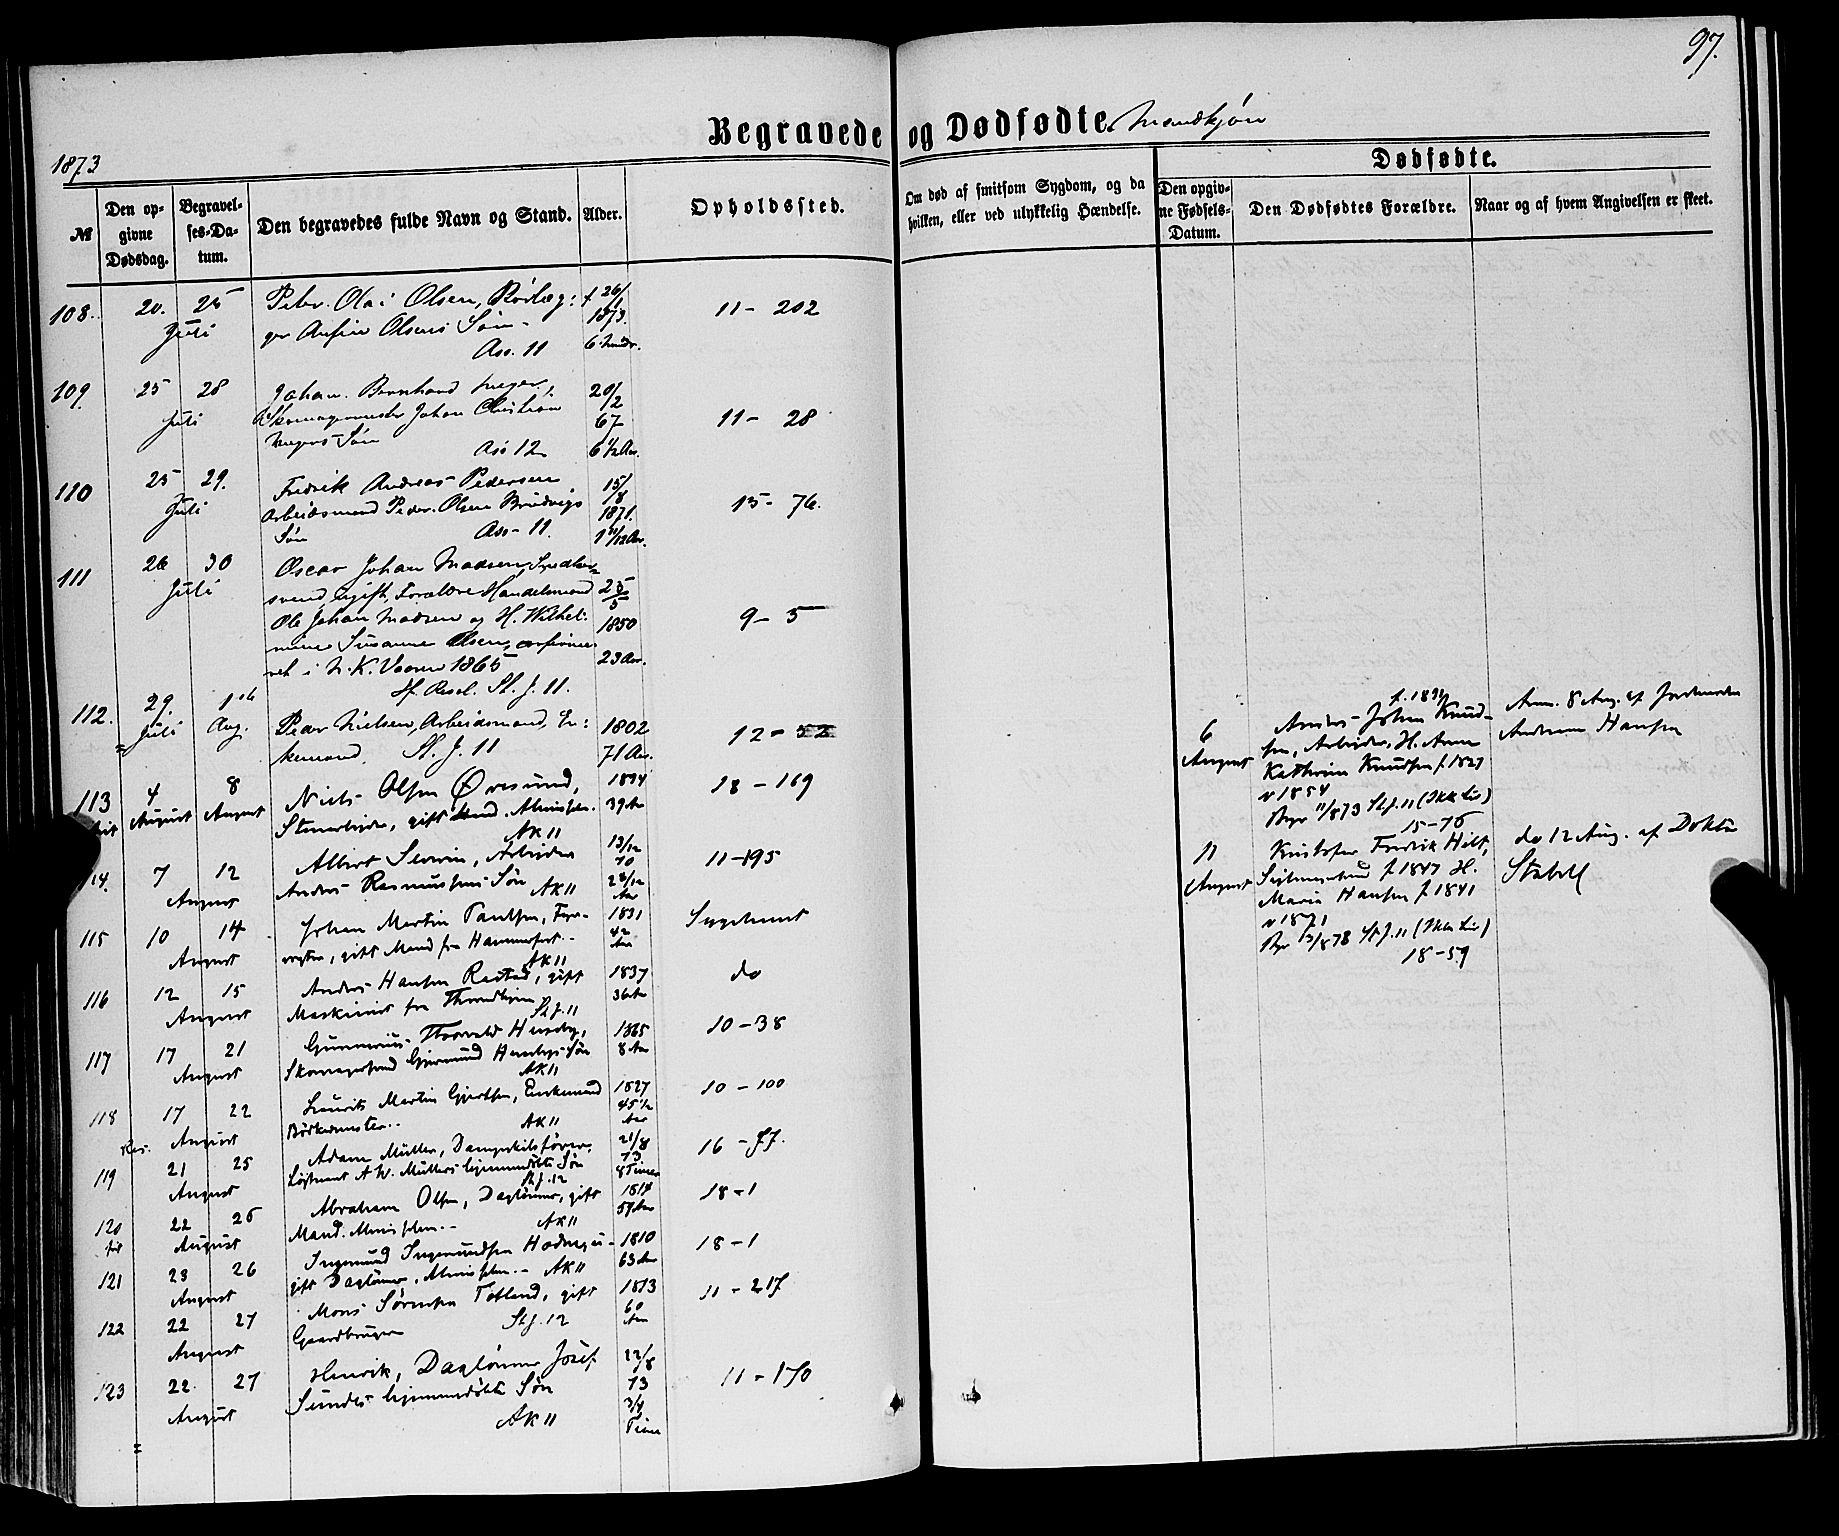 97.
1873
Begravede og Dødfødte. Mandkjøn
Dødfødte.
№
Den op-
givne
Dødsdag.
Begravel-
ses-Da-
tum.
Den begravedes fulde Navn og Stand.
Alder.
Opholdssted.
Om død af smitsom Sygdom, og da
hvilken, eller ved ulykkelig Hændelse.
Den opgiv-
ne Fødsels-
Datum.
Den Dødfødtes Forældre.
Naar og af hvem Angivelsen er skeet.
108. 20. 25 Peder Olai Olsen, 26/1 11 - 202
Juli Olsens Søn 1873.
Ass. 11 6
109. 25 28 Johan Bernhard 20/2 11 - 28
Juli Skomagermester Johan Christian 67
Søn Ass 12 6 1/2 Aar.
110 25 29. Fredrik Andreas Pedersen 15/8 15 - 76.
Juli Arbeidsmand Peder Olsen 1871.
Søn Ass. 11. 1 11/12 Aar.
111 26 30 Oscar Johan Madsen
Juli svend, ugift, Forældre Handelsmand 25/5
Ole Johan Madsen og H. Wilhel- 1850 9 - 5
mine Susanne Olsen, confirme-
ret i N. K. Vaaren 1865 23 Aar.
St. J. 11.
112. 29. 1ste Peder Nielsen, Arbeidsmand, En- 1802 12 - 52
Juli Aug. kemand. St. J. 11 71 Aar.
113 4 8 Niels Olsen Øvresund, 1834 18 - 169
August August Stenarbeider, gift Mand. 39 Aar
AK 11
14. 7 12 Albert Severin, Arbeider 13/12 70 11 - 195
August Anders Rasmussens Søn AK 11 2 8/12 Aar
115 10 14 Johan Martin Paulsen, Fyr- 1831 Sygehuset
August vogter, gift Mand fra Hammerfest. 42 Aar
AK 11
116 12 15 Anders Hansen Rastad, gift 1837 do
August Maskinist fra Throndhjem St. J. 11 36 Aar
117 17 21 Gunnerius Thorvald Huseby, 1865 10 - 38
August Skomagersvend Gjermund Husebys Søn 8 Aar
AK 11
118 17 22 Laurits Martin Gjertsen, Enkemand 1827 10 - 100
August Bødkermester. AK 11 45 1/2 Aar
119 21 25 Adam Müller, Dampskibsfører, 21/8 73 16 - 77.
August A. W. Müllers hjemmedøbte Søn 8 Timer
St. J. 12
120 22 26 Abraham Olsen, Daglønner, gift 1814 18 - 1
August Mand. AK 11 59 Aar
121 23 26 Ingemund Ingemundsen 1810 18 - 1
August gift Daglønner, AK 11 63 Aar
122 22 27 Mons Sørensen Totland, gift 1813 11 - 217
August Gaardbruger St. J. 12 60 Aar
123 22. 27 Henrik, Daglønner Josef 22/8 11 - 170
August Sundes hjemmedøbte Søn 73
AK 11 3/4 Time
6 August
Anders Johan Knud-
sen, Arbeider, H. Anna
Kathrine Knudsen f. 1827
v 1854
Begr 11/8 73 St. J. 11 (Ikke Lig)
15 - 76
Anm. 8 Aug. af Jordmoder
Andrea Hansen
11 August
Kristofer Fredrik Hilt,
f. 1847 H.
Maria Hansen f. 1841
v 1871
Begr 13/8 73 St. J. 11 (Ikke Lig)
18 - 59
do 12 Aug. af Doktor
Stabell